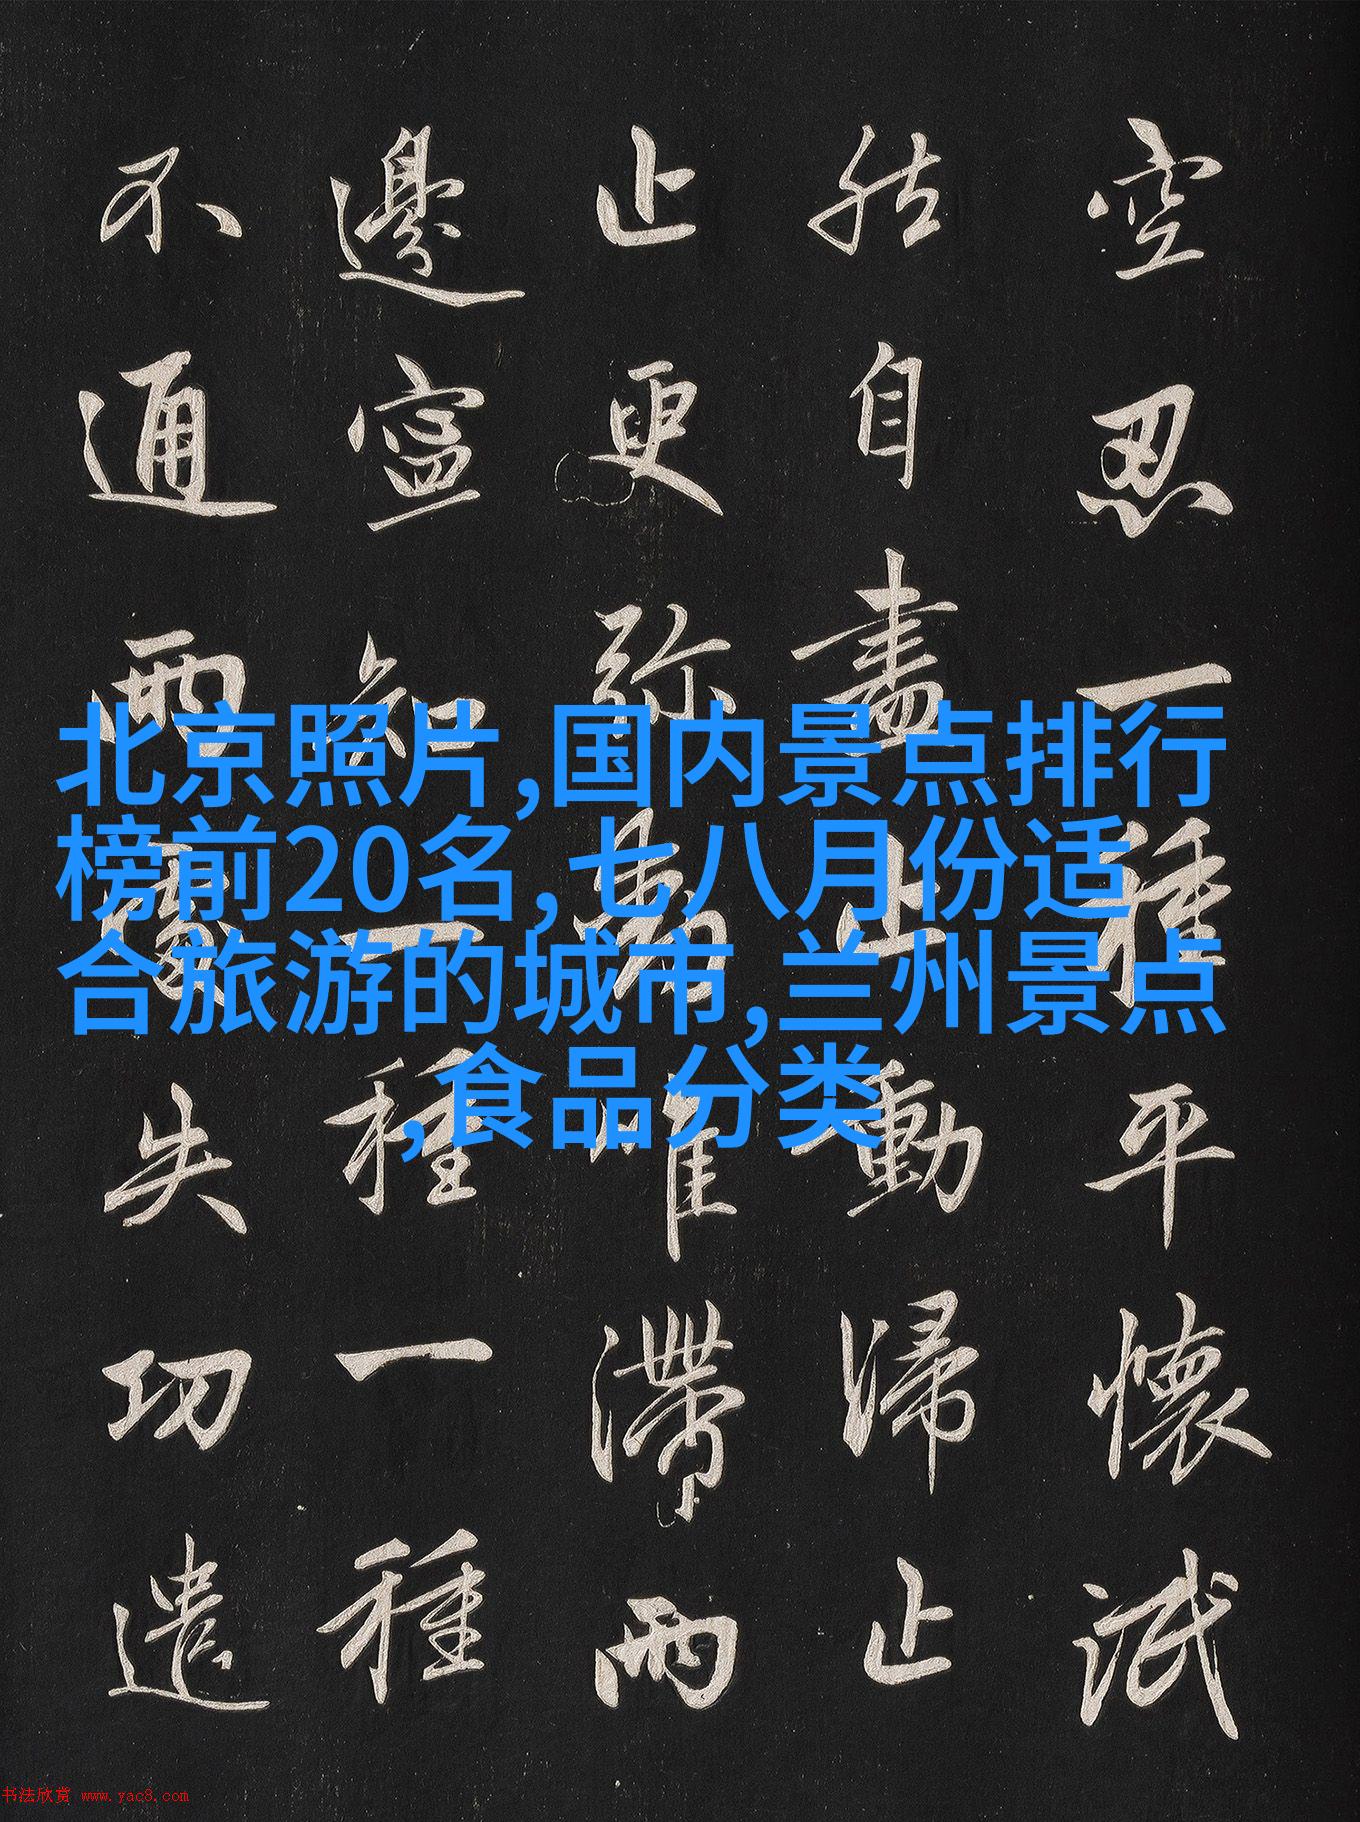 空忍一種平懷泯
然自盡止動歸止
止更弥動唯滯兩
邊寧知一種一種
不通兩處失功遣
北京照片,国内景点排行
榜前20名,七八月份适
合旅游的城市,兰州景点
,食品分类
书法欣赏 www.yac8.com